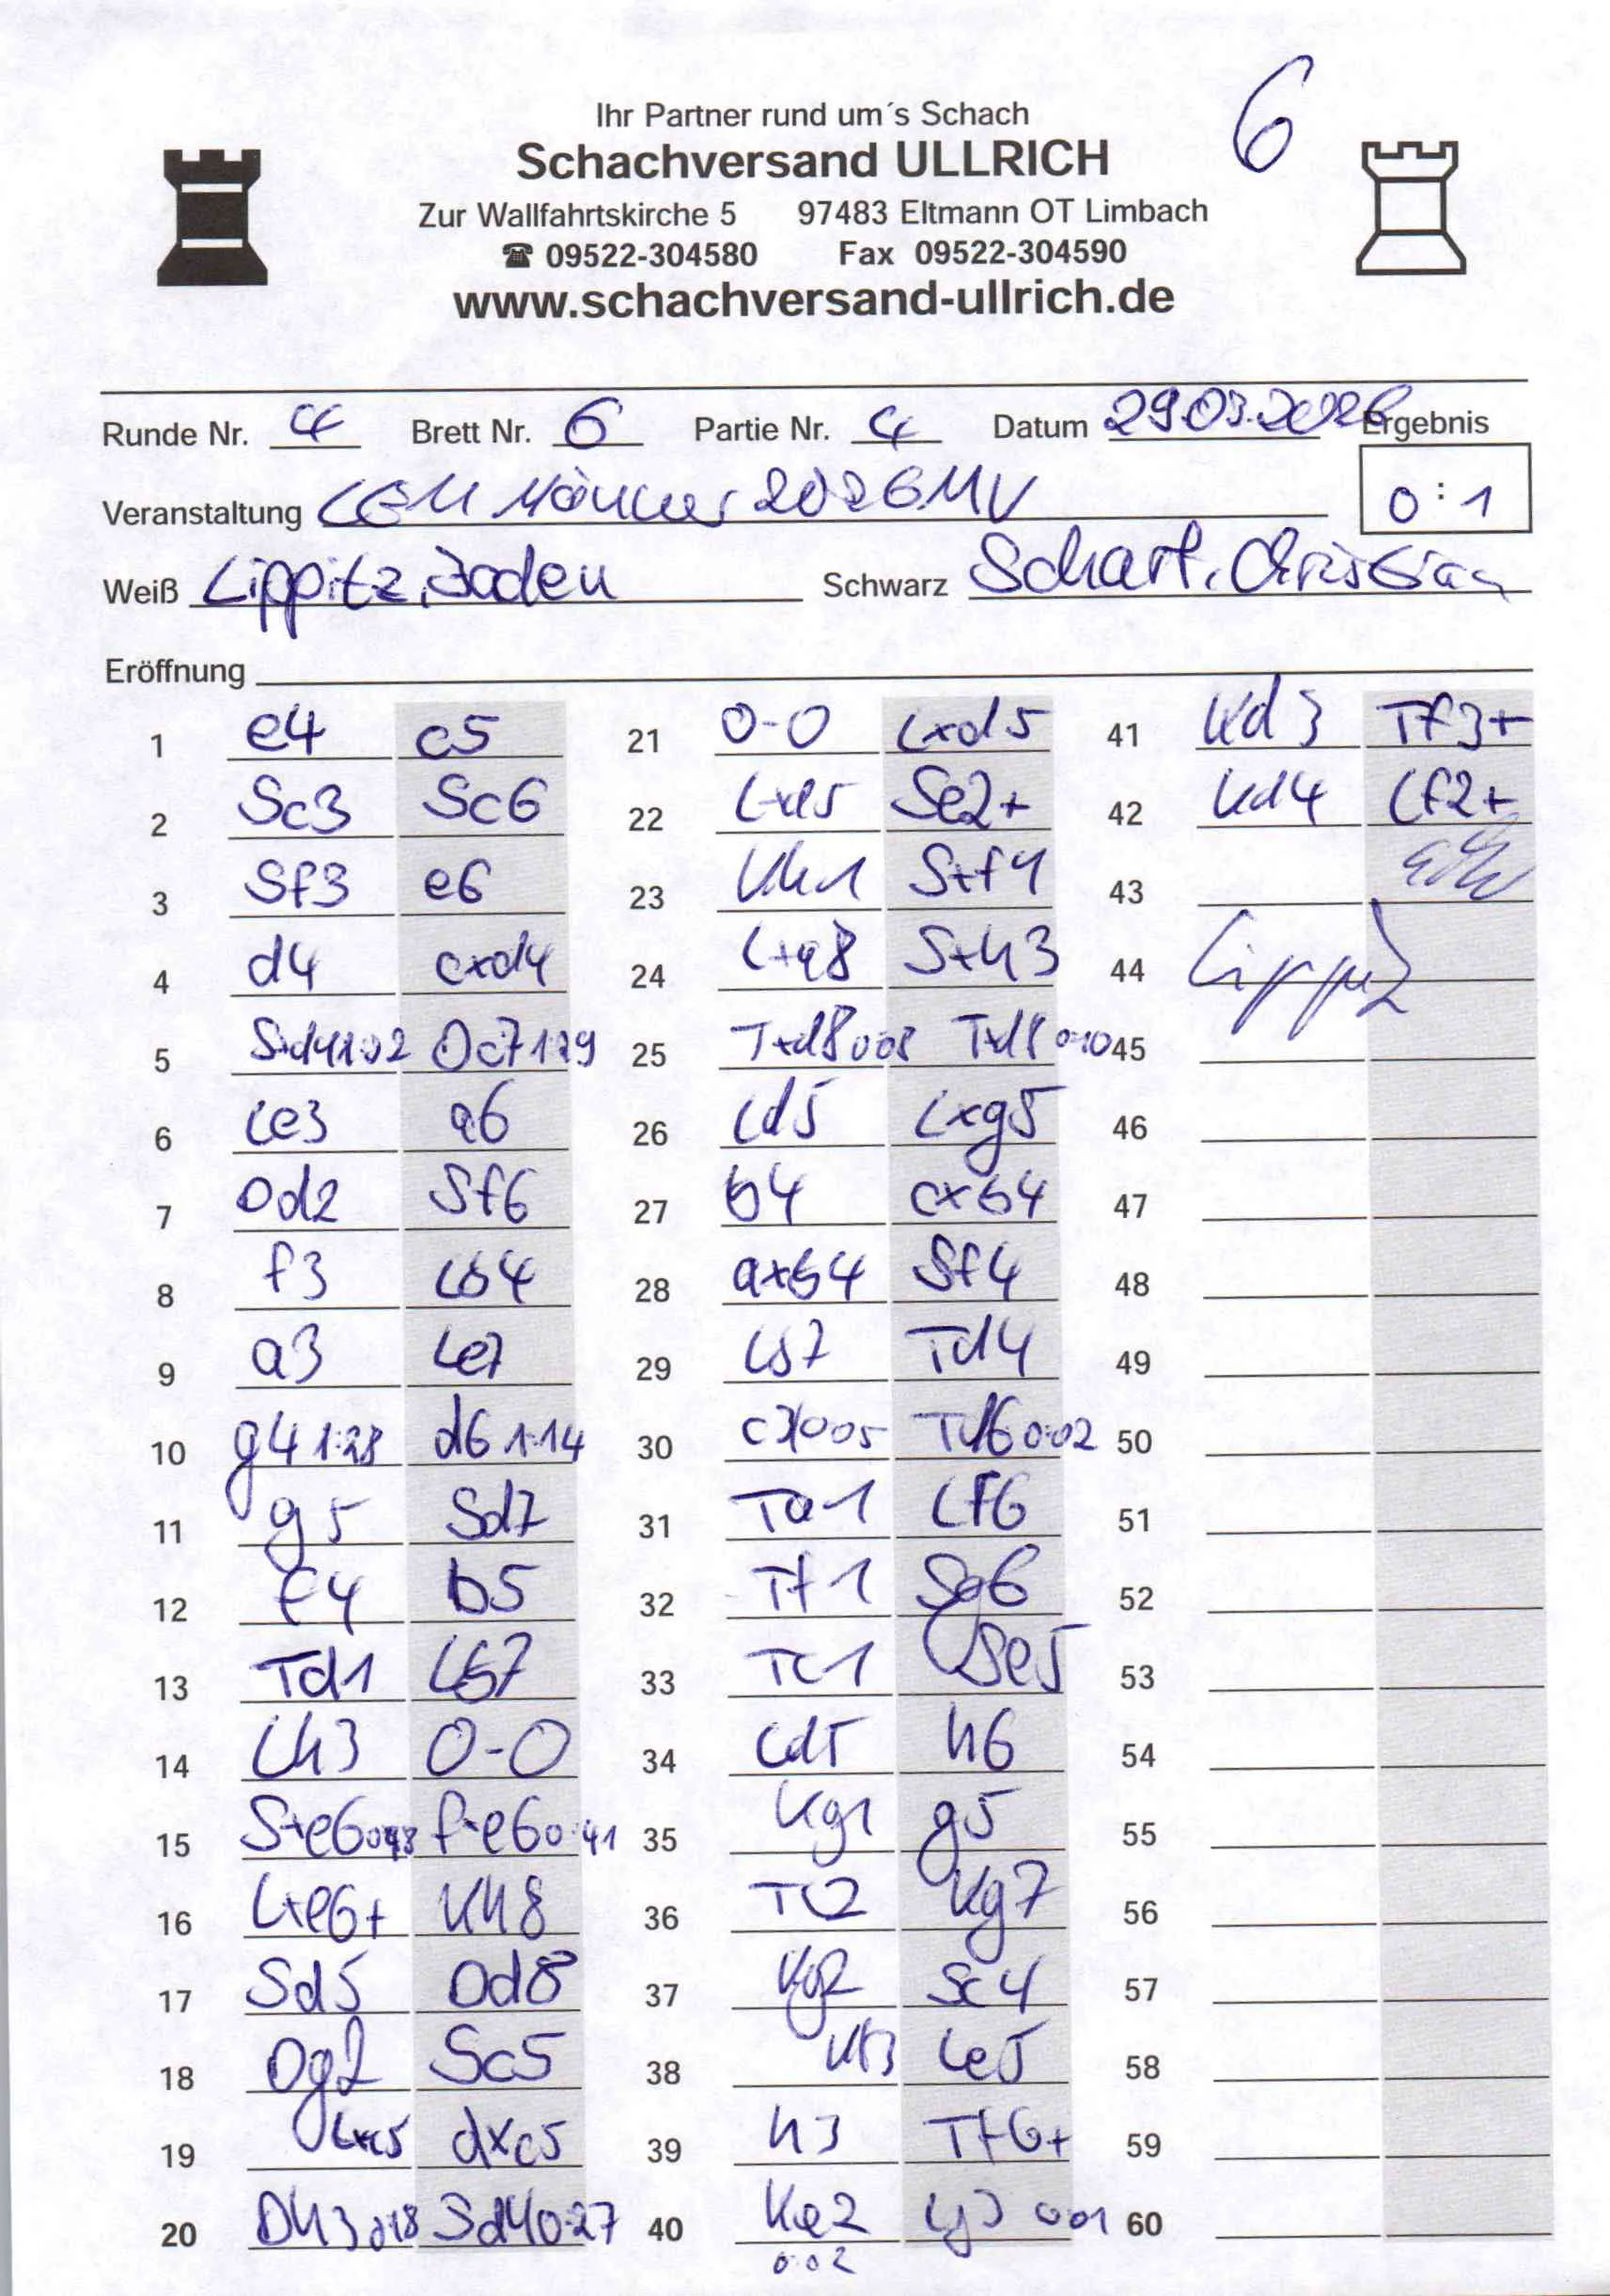 6
Ihr Partner rund um´s Schach
Schachversand ULLRICH
Zur Wallfahrtskirche 5 97483 Eltmann OT Limbach
☎ 09522-304580 Fax 09522-304590
www.schachversand-ullrich.de
Runde Nr. 4 Brett Nr. 6 Partie Nr. 4 Datum 29.03.2026 Ergebnis
Veranstaltung LEM Männer 2026 MV 0:1
Weiß Lippitz, Schwarz Scharf, Christian
Eröffnung
1 e4 c5 21 0-0 Lxd5 41 Kd3 Tf3+
2 Sc3 Sc6 22 Lxd5 Se2+ 42 Kd4 Lf2+
3 Sf3 e6 23 Kh1 Sxf4 43
4 d4 cxd4 24 Lxa8 Sxh3 44 Lippitz
5 Sxd4 1:02 Dc7 1:29 25 Txd8 0:08 Txd8 0:10 45
6 Le3 a6 26 Ld5 Lxg5 46
7 Dd2 Sf6 27 b4 cxb4 47
8 f3 Lb4 28 axb4 Sf4 48
9 a3 Le7 29 Lb7 Td4 49
10 g4 1:28 d6 1:14 30 c3 0:05 Td6 0:02 50
11 g5 Sd7 31 Ta1 Lf6 51
12 f4 b5 32 Tf1 Sg6 52
13 Td1 Lb7 33 Tc1 Se5 53
14 Lh3 0-0 34 Ld5 h6 54
15 Sxe6 0:48 fxe6 0:41 35 Kg1 g5 55
16 Lxe6+ Kh8 36 Tc2 Kg7 56
17 Sd5 Dd8 37 Kg2 Sc4 57
18 Dg2 Sc5 38 Kf3 Le5 58
19 Lxc5 dxc5 39 h3 Tf6+ 59
20 Dh3 0:18 Sd4 0:27 40 Ke2 Lg3 0:01 60
0:02